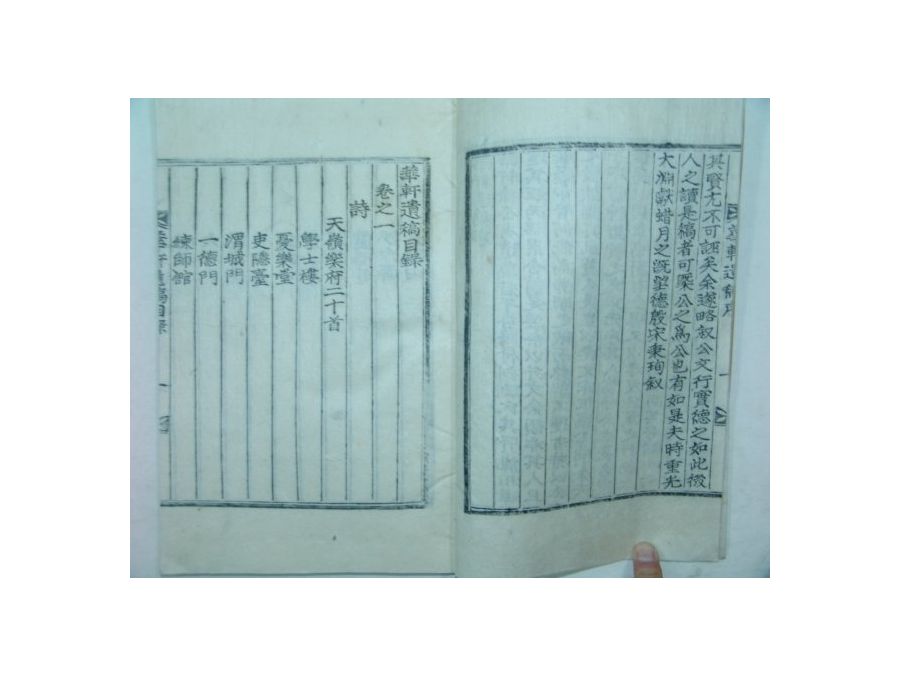 其賢尤不可誣矣余遂略叙公文行實德之如此後
人之讀是稿者可槩公之爲公也有如是夫時重光
大淵獻蜡月之旣望德殷宋秉珣叙
華軒遺稿目錄
卷之一
詩
天嶺樂府二十首
學士樓
憂樂臺
吏隱臺
渭城門
一德門
練師館